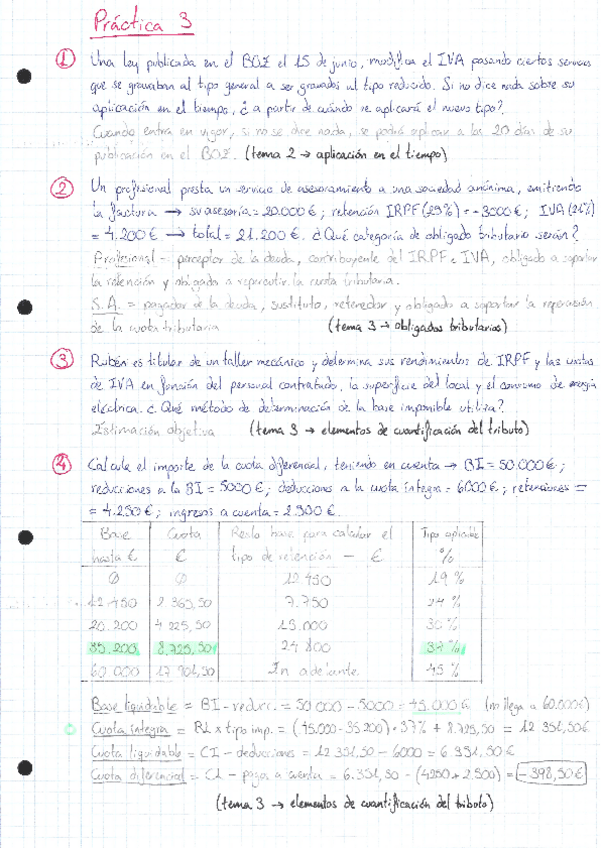 Práctica 3
① Una ley publicada en el BOE el 15 de junio, modifica el IVA pasando ciertos servicios
que se gravaban al tipo general a ser gravados al tipo reducido. Si no dice nada sobre su
aplicación en el tiempo, ¿a partir de cuándo se aplicará el nuevo tipo?
Cuando entra en vigor, si no se dice nada, se podrá aplicar a los 20 días de su
publicación en el BOE. (tema 2 → aplicación en el tiempo)
② Un profesional presta un servicio de asesoramiento a una sociedad anónima, emitiendo
la factura → su asesoría = 20.000 €; retención IRPF = -3000 €; IVA (21%)
= 4.200 € → total = 21.200 €. ¿Qué categoría de obligado tributario serán?
Profesional = perceptor de la deuda, contribuyente del IRPF e IVA, obligado a soportar
la retención y obligado a repercutir la cuota tributaria.
S.A. = pagador de la deuda, sustituto, retenedor y obligado a soportar la repercusión
de la cuota tributaria (tema 3 → obligados tributarios)
③ Rubén es titular de un taller mecánico y determina sus rendimientos de IRPF y las cuotas
de IVA en función del personal contratado, la superficie del local y el consumo de energía
eléctrica. ¿Qué método de determinación de la base imponible utiliza?
Estimación objetiva (tema 3 → elementos de cuantificación del tributo)
④ Calcula el importe de la cuota diferencial, teniendo en cuenta → BI = 50.000 €;
reducciones a la BI = 5000 €; deducciones a la cuota íntegra = 6000 €; retenciones =
= 4.250 €; ingresos a cuenta = 2.500 €.
Base hasta € Cuota € Resto base para calcular el tipo de retención — € Tipo aplicable %
0 0 12.450 19 %
12.450 2.365,50 7.750 24 %
20.200 4.225,50 15.000 30 %
35.200 8.725,50 24.800 37 %
60.000 17.901,50 En adelante 45 %
Base liquidable = BI - reducc. = 50.000 - 5000 = 45.000 € (no llega a 60.000 €)
Cuota íntegra = BL x tipo imp. = (45.000 - 35.200) · 37% + 8.725,50 = 12.351,50 €
Cuota líquidable = CI - deducciones = 12.351,50 - 6000 = 6.351,50 €
Cuota diferencial = CL - pagos a cuenta = 6.351,50 - (4250 + 2.500) = -398,50 €
(tema 3 → elementos de cuantificación del tributo)